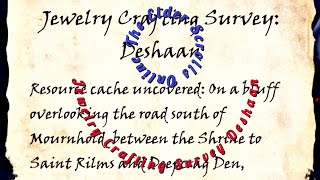 Jewelry Crafting Survey:
Deshaan
The Elder Scrolls Online
Resource cache uncovered: On a bluff
overlooking the road south of
Mournhold, between the Shrine to
Saint Rilms and Deepcrag Den,
Jewelry Crafting Survey Deshaan